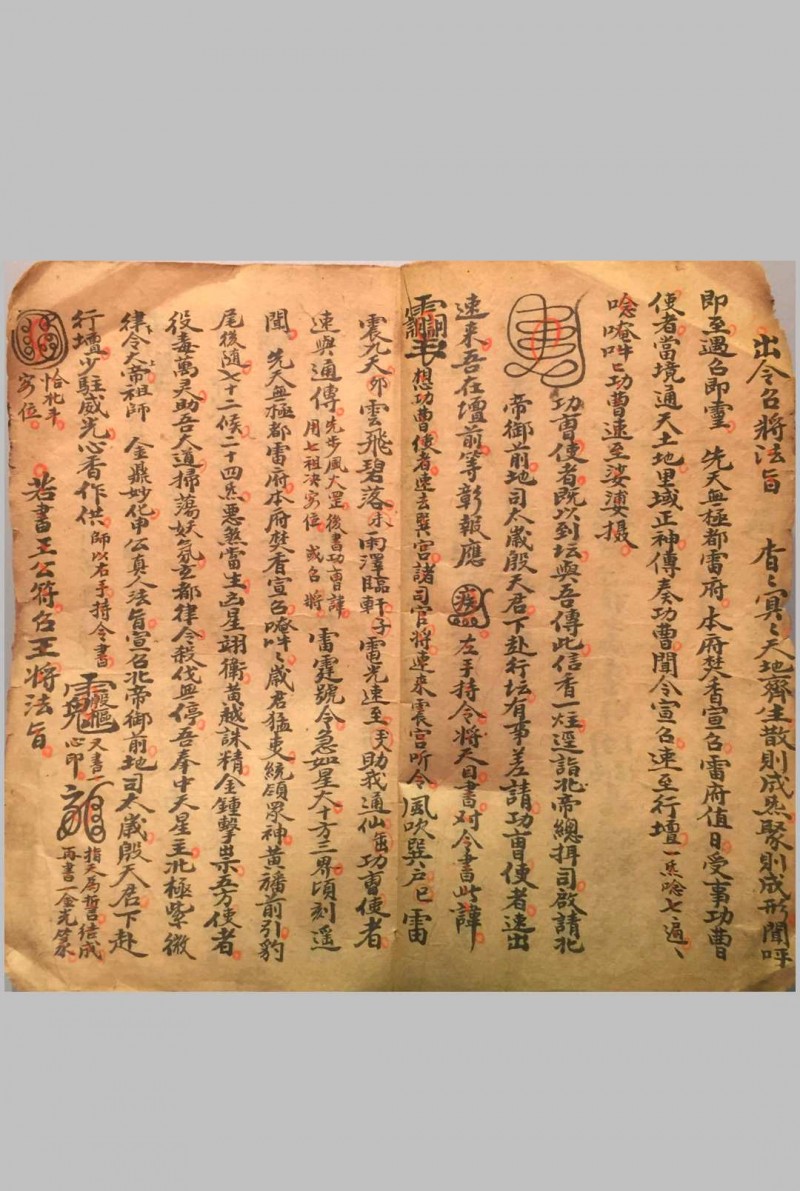 出令召將法旨　杳〻冥〻天地齊生散則成炁聚則成形聞呼
即至遇召即靈　先天無極都雷府　本府焚香宣召雷府值日受事功曹
使者當境通天土地里域正神傳奏功曹聞令宣召速至行壇一炁唸七遍〻
唸唵吽〻功曹速至娑婆摄
功曹使者既以到坛與吾傳此信香一炷逕詣北帝總
司啟請北
帝御前地司太歲殷天君下赴行坛有事差請功曹使者速出
速来吾在壇前等彰報應　左手持令將天目書对令書此諱
想功曹使者速去巽宫諸司官将速来震宫听令風吹巽户巳雷
震九天卯雲飛碧落未雨澤臨軒子雷光速至助我通仙功曹使者
速與通傳先步風火罡後書功曹諱
用七祖决安位　或召將
雷霆號令急如星火十方三界頃刻遥
聞　先天無極都雷府本府焚香宣召唵吽〻歲君猛吏統領眾神黄旛前引豹
尾後隨七十二候二十四炁悪煞雷生凶星翊衛黄越誅精金鍾擊祟五方使者
役毒萬灵助吾大道掃蕩妖氛玄都律令殺伐無停吾奉中天星主北極紫微
律令大帝祖師　金鼎妙化申公真人法旨宣召北帝御前地司太歲殷天君下赴
行壇少駐威光心香作供師以右手持令書
天書一
心印
指天為誓结成
再書一金光
恰北斗
安位
若書王公符召王將法旨